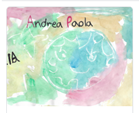 Andrea Paola